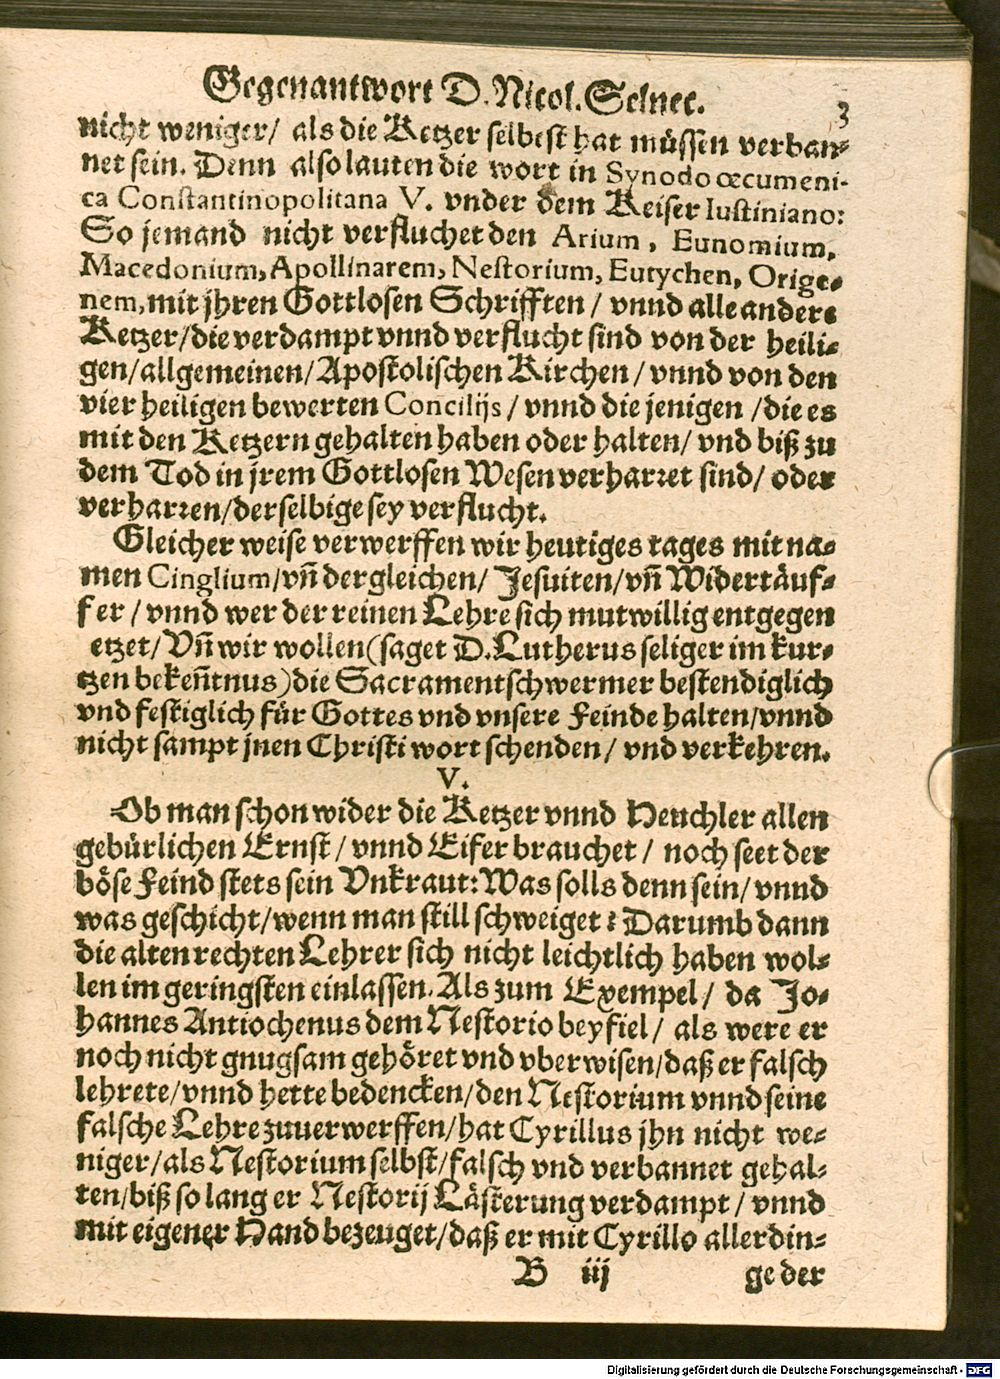 Gegenantwort D. Nicol. Selnec.
3
nicht weniger/ als die Ketzer selbest hat müssen verban-
net sein. Denn also lauten die wort in Synodo œcumeni-
ca Constantinopolitana V. vnder dem Keiser Iustiniano:
So jemand nicht verfluchet den Arium, Eunomium,
Macedonium, Apollinarem, Nestorium, Eutychen, Orige-
nem, mit jhren Gottlosen Schrifften/ vnnd alle andere
Ketzer/ die verdampt vnnd verflucht sind von der heili-
gen/ allgemeinen/ Apostolischen Kirchen/ vnnd von den
vier heiligen bewerten Concilijs/ vnnd die jenigen/ die es
mit den Ketzern gehalten haben oder halten/ vnd biß zu
dem Tod in jrem Gottlosen Wesen verharret sind/ oder
verharren/ derselbige sey verflucht.
Gleicher weise verwerffen wir heutiges tages mit na-
men Cinglium/ vñ dergleichen/ Jesuiten/ vñ Widertäuf-
fer/ vnnd wer der reinen Lehre sich mutwillig entgegen
etzet/ Vñ wir wollen (saget D. Lutherus seliger im kur-
tzen bekeñtnus) die Sacramentschwermer bestendiglich
vnd festiglich für Gottes vnd vnsere Feinde halten/ vnnd
nicht sampt jnen Christi wort schenden/ vnd verkehren.
V.
Ob man schon wider die Ketzer vnnd Heuchler allen
gebürlichen Ernst/ vnnd Eifer brauchet/ noch seet der
böse Feind stets sein Vnkraut: Was solls denn sein/ vnnd
was geschicht/ wenn man still schweiget? Darumb dann
die alten rechten Lehrer sich nicht leichtlich haben wol-
len im geringsten einlassen. Als zum Exempel/ da Jo-
hannes Antiochenus dem Nestorio beyfiel/ als were er
noch nicht gnugsam gehöret vnd vberwisen/ daß er falsch
lehrete/ vnnd hette bedencken/ den Nestorium vnnd seine
falsche Lehre zuuerwerffen/ hat Cyrillus jhn nicht we-
niger/ als Nestorium selbst/ falsch vnd verbannet gehal-
ten/ biß so lang er Nestorij Lästerung verdampt/ vnnd
mit eigener Hand bezeuget/ daß er mit Cyrillo allerdin-
B iij ge der
Digitalisierung gefördert durch die Deutsche Forschungsgemeinschaft - DFG